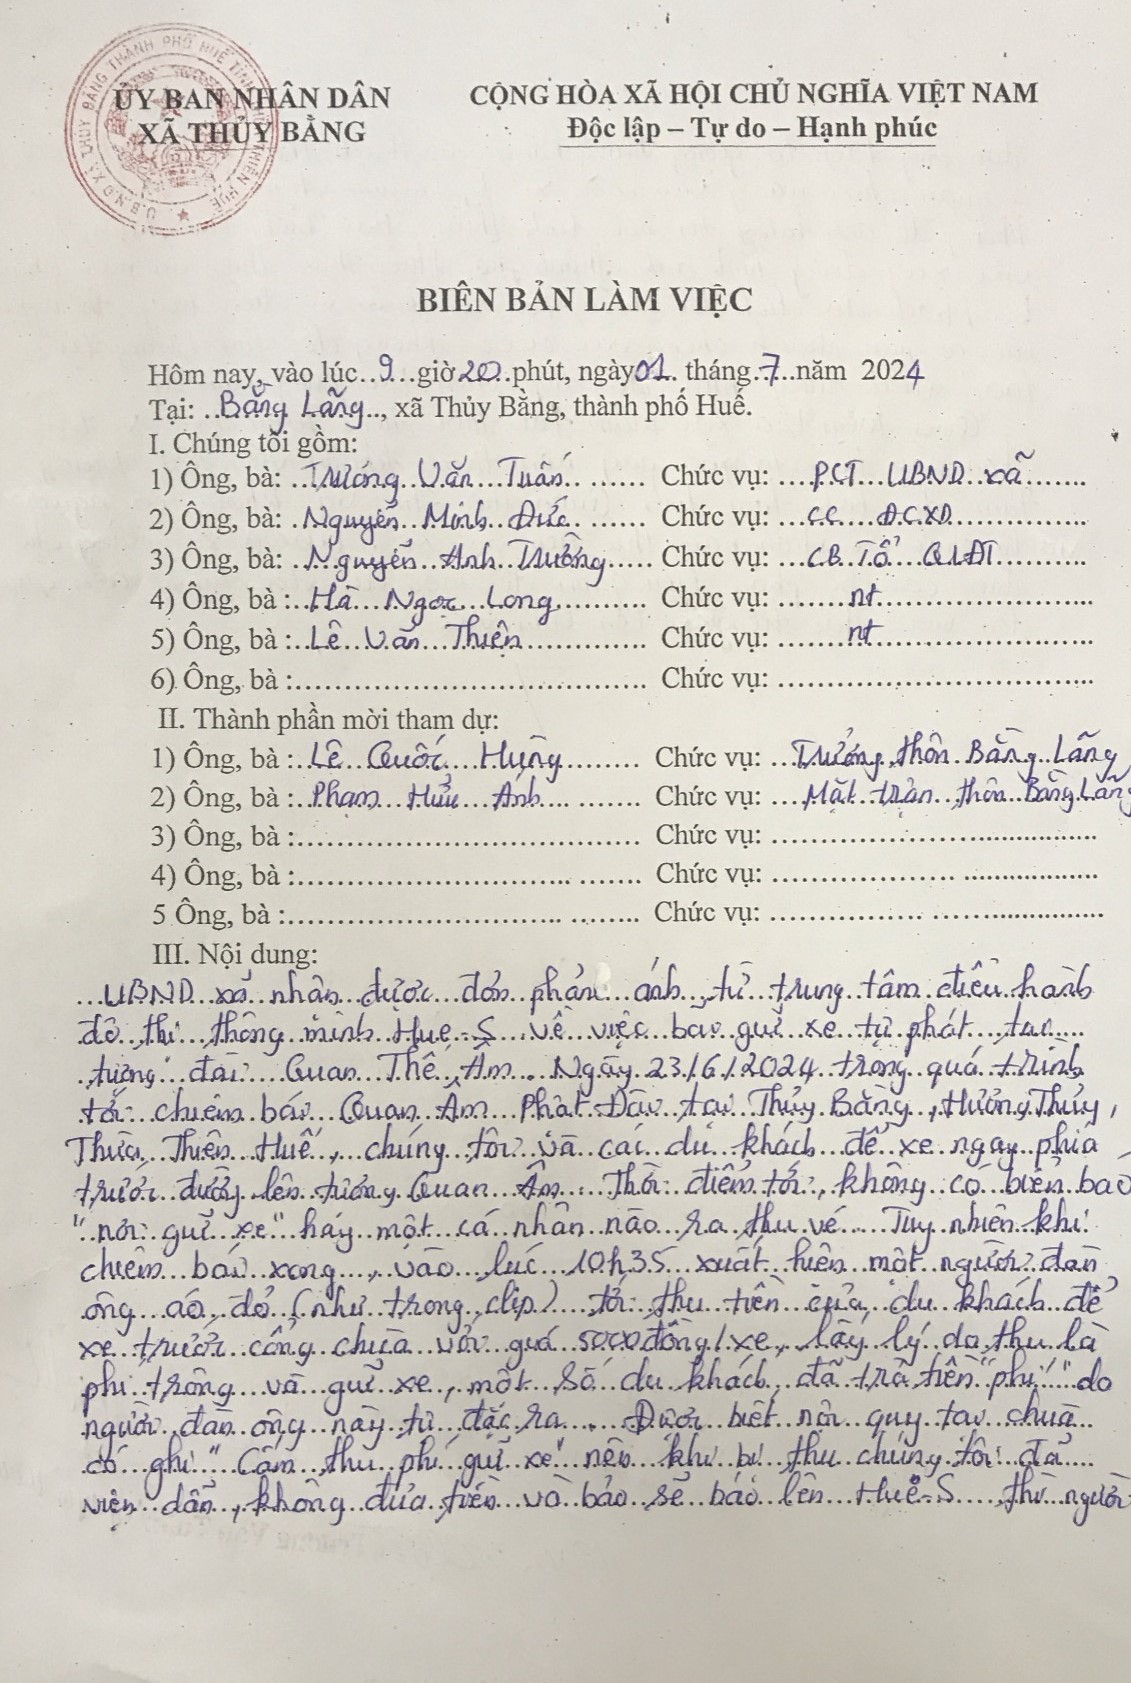 ỦY BAN NHÂN DÂN
XÃ THỦY BẰNG
CỘNG HÒA XÃ HỘI CHỦ NGHĨA VIỆT NAM
Độc lập – Tự do – Hạnh phúc
BIÊN BẢN LÀM VIỆC
Hôm nay, vào lúc 9 giờ 20 phút, ngày 01 tháng 7 năm 2024
Tại: Bằng Lãng, xã Thủy Bằng, thành phố Huế.
I. Chúng tôi gồm:
1) Ông, bà: Trương Văn Tuấn Chức vụ: PCT UBND xã
2) Ông, bà: Nguyễn Minh Đức Chức vụ: CC ĐCXD
3) Ông, bà: Nguyễn Anh Trường Chức vụ: CB Tổ QLĐT
4) Ông, bà : Hà Ngọc Long Chức vụ: nt
5) Ông, bà : Lê Văn Thiện Chức vụ: nt
6) Ông, bà : Chức vụ:
II. Thành phần mời tham dự:
1) Ông, bà : Lê Quốc Hùng Chức vụ: Trưởng thôn Bằng Lãng
2) Ông, bà : Phạm Hữu Ánh Chức vụ: Mặt trận thôn Bằng Lãng
3) Ông, bà : Chức vụ:
4) Ông, bà : Chức vụ:
5 Ông, bà : Chức vụ:
III. Nội dung:
UBND xã nhận được đơn phản ánh từ trung tâm điều hành
đô thị thông minh Hue-S về việc bãi gửi xe tự phát tại
tượng đài Quan Thế Âm. Ngày 23/6/2024 trong quá trình
tới chiêm bái Quan Âm Phật Đài tại Thủy Bằng, Hương Thủy,
Thừa Thiên Huế, chúng tôi và các du khách để xe ngay phía
trước đường lên tượng Quan Âm. Thời điểm tới, không có biển báo
"nơi gửi xe" hay một cá nhân nào ra thu vé. Tuy nhiên khi
chiêm bái xong, vào lúc 10h35 xuất hiện một người đàn
ông áo đỏ (như trong clip) tới thu tiền của du khách để
xe trước cổng chùa với giá 5000đồng/xe, lấy lý do thu là
phí trông và gửi xe, một số du khách đã trả tiền "phí" do
người đàn ông này tự đặt ra. Được biết nội quy tại chùa
có ghi "Cấm thu phí gửi xe" nên khi bị thu chúng tôi đã
viện dẫn, không đưa tiền và bảo sẽ báo lên Huế-S, thì người